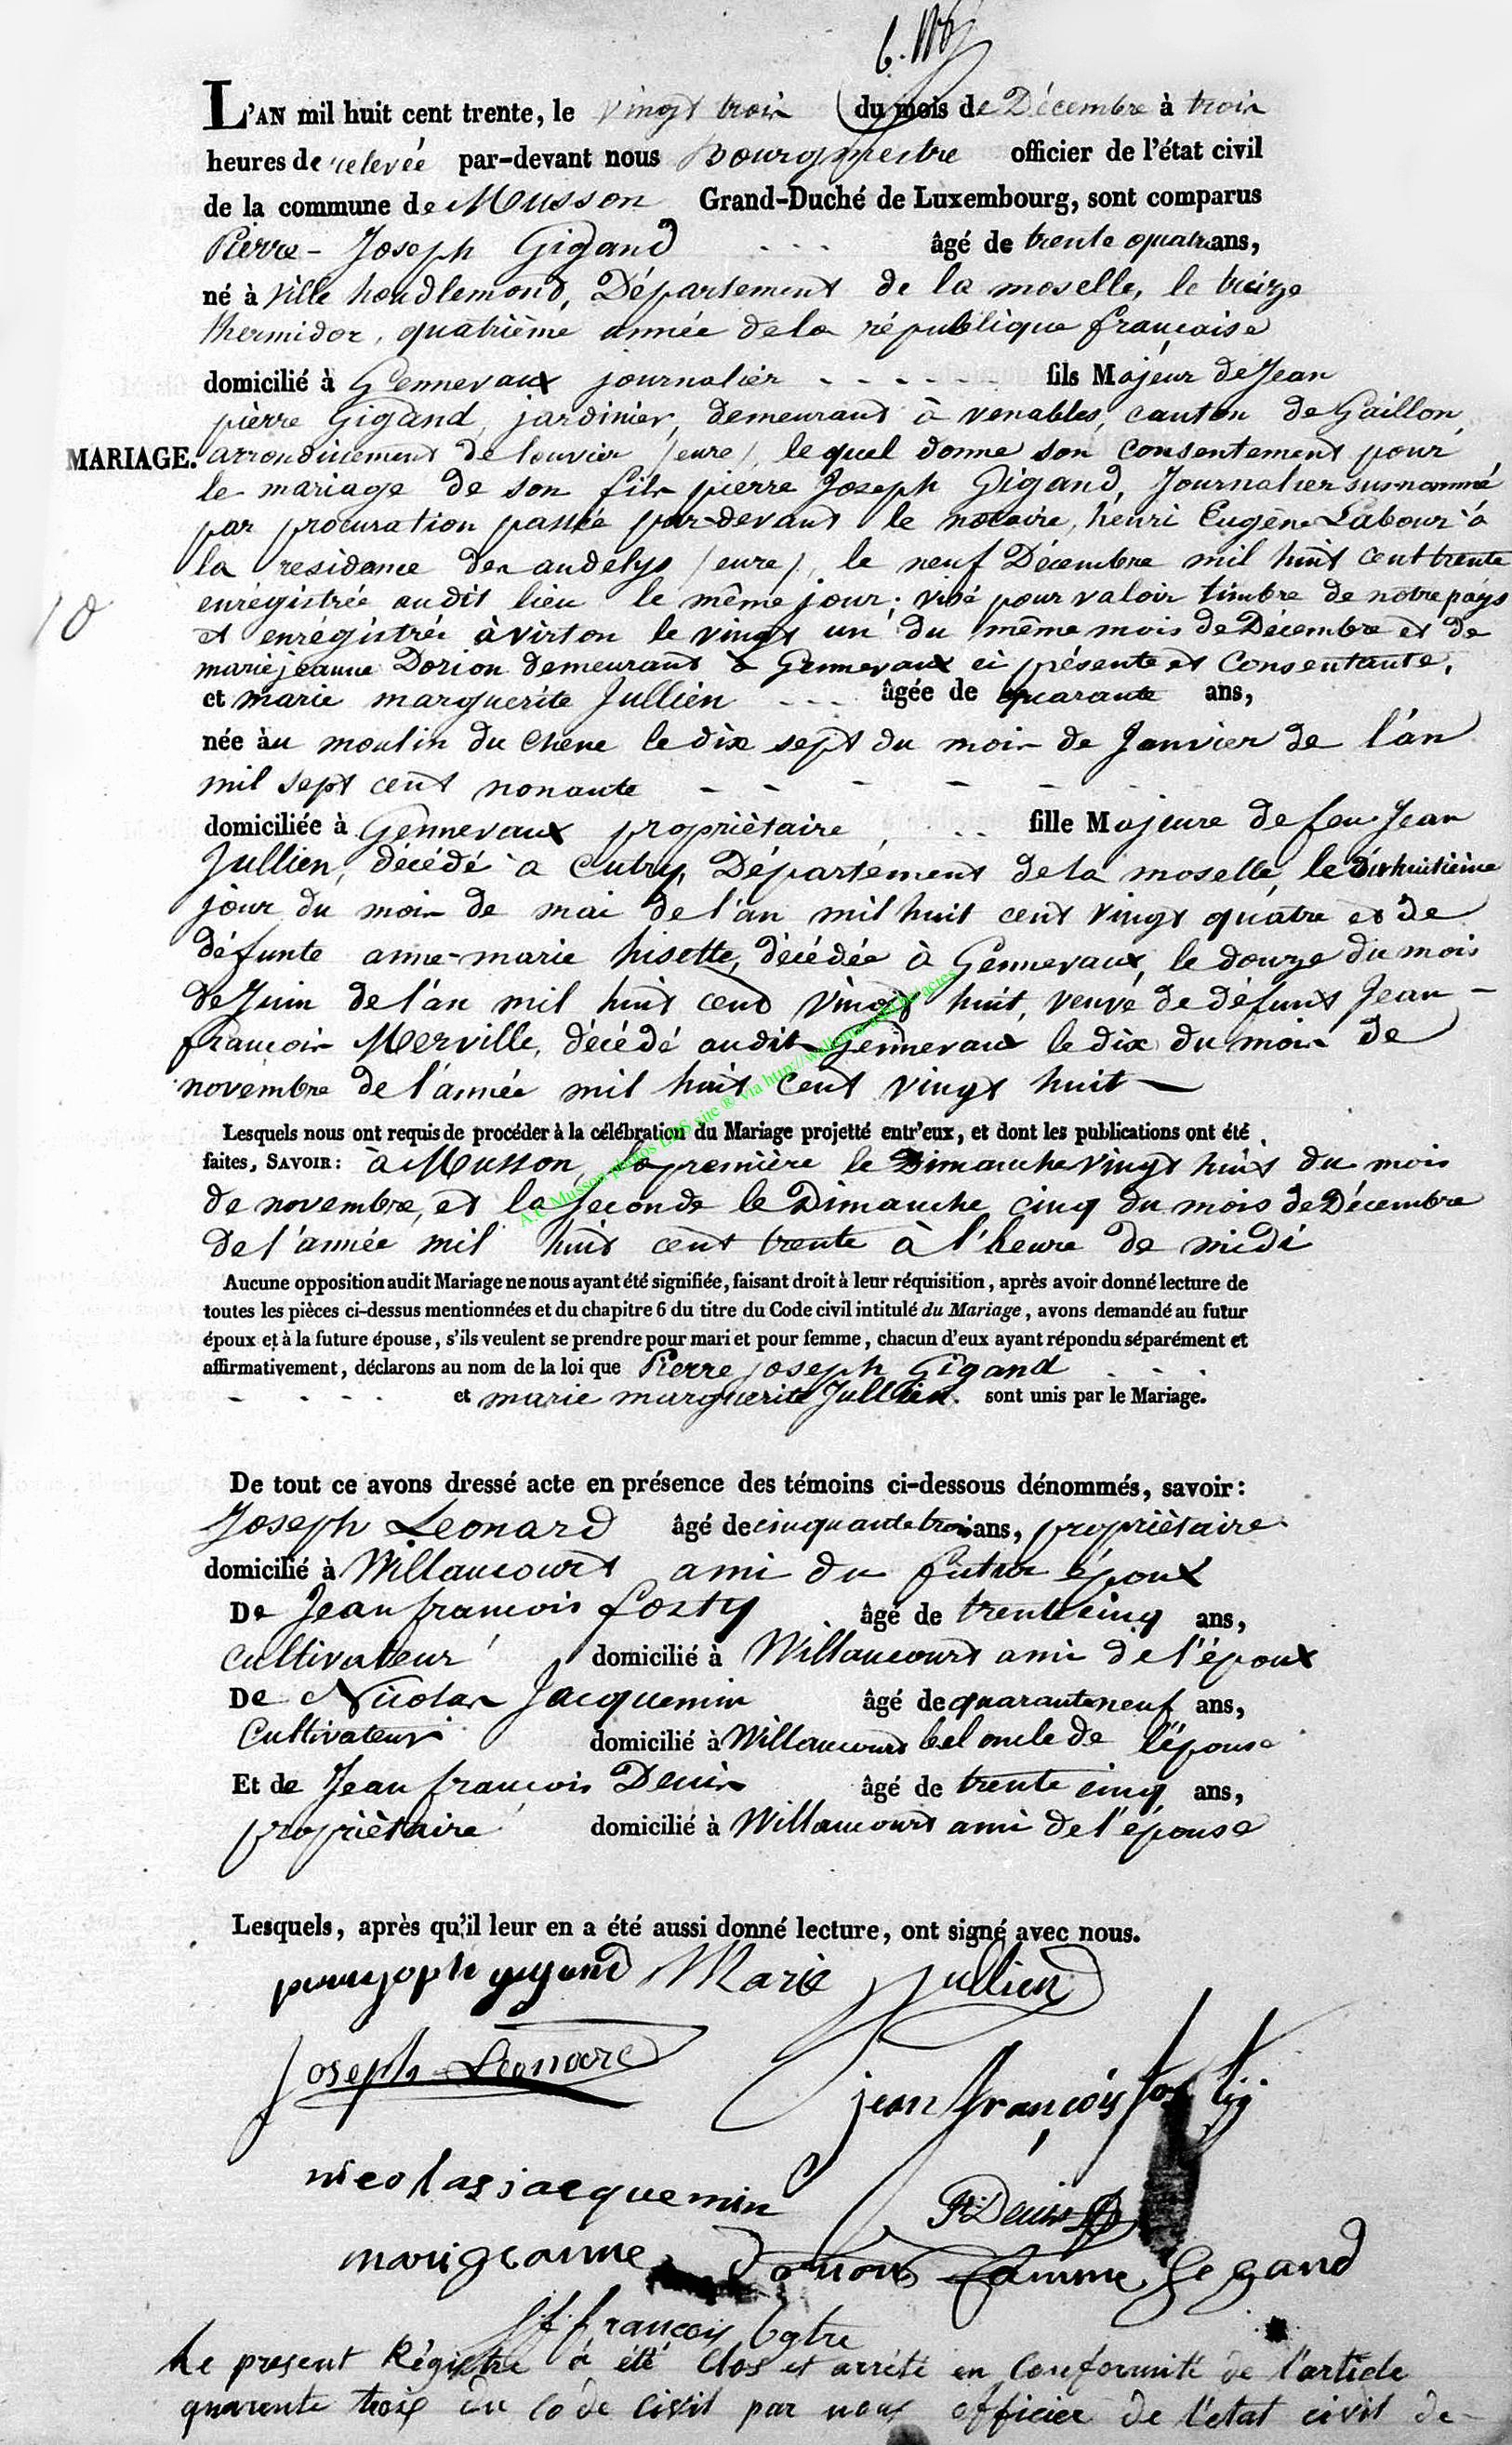 L'AN mil huit cent trente, le vingt trois du mois de Décembre à trois
heures de relevée par-devant nous Bourgmestre officier de l'état civil
de la commune de Musson Grand-Duché de Luxembourg, sont comparus
Pierre - Joseph Gigand âgé de trente quatre ans,
né à Ville houdlemond, Département de la moselle, le treize
thermidor, quatrième année de la république française
domicilié à Gennevaux journalier - - - - - - fils Majeur de Jean
pierre Gigand, jardinier, demeurant à venables, canton de Gaillon,
MARIAGE. arrondissement de louvier (eure), lequel donne son consentement pour
le mariage de son fils pierre Joseph Gigand, Journalier susnommé
par procuration passée par-devant le notaire, henri Eugène Labour à
la residence des andelys (eure), le neuf Décembre mil huit cent trente
enregistrée audit lieu le même jour; visé pour valoir timbre de notre pays
10
et enrégistrée à virton le vingt un du même mois de Décembre et de
marie jeanne Dorion demeurant à Gennevaux ci présente et Consentante,
et marie marguerite Jullien - - - âgée de quarante ans,
née au moulin du Chene le dix sept du mois de Janvier de l'an
mil sept cent nonante - - - - -
domiciliée à Gennevaux propriètaire fille Majeure de feu Jean
Jullien, décédé à Cutry, Département de la moselle, le dixhuitième
jour du mois de mai de l'an mil huit cent vingt quatre et de
défunte anne-marie hisette, décédée à Gennevaux, le douze du mois
de Juin de l'an mil huit cent vingt huit, veuve de défunt Jean -
francois Merville, décédé audit Gennevaux le dix du mois de
novembre de l'année mil huit cent vingt huit —
A.C Musson photos LDS site ® via http://wallonia-asbl.be/actes
Lesquels nous ont requis de procéder à la célébration du Mariage projetté entr'eux, et dont les publications ont été
faites, SAVOIR: à Musson, la première le Dimanche vingt huit du mois
de novembre, et la seconde le Dimanche cinq du mois de Décembre
de l'année mil huit cent trente à l'heure de midi
Aucune opposition audit Mariage ne nous ayant été signifiée, faisant droit à leur réquisition, après avoir donné lecture de
toutes les pièces ci-dessus mentionnées et du chapitre 6 du titre du Code civil intitulé du Mariage, avons demandé au futur
époux et à la future épouse, s'ils veulent se prendre pour mari et pour femme, chacun d'eux ayant répondu séparément et
affirmativement, déclarons au nom de la loi que Pierre joseph Gigand
et marie marguerite Jullien. sont unis par le Mariage.
De tout ce avons dressé acte en présence des témoins ci-dessous dénommés, savoir:
Joseph Leonard âgé de cinquante trois ans, propriètaire
domicilié à Willancourt ami du futur époux
De Jean francois fosty âgé de trente cinq ans,
Cultivateur domicilié à Willancourt ami de l'époux
De Nicolas Jacquemin âgé de quarante neuf ans,
Cultivateur domicilié à Willancourt bel oncle de l'épouse
Et de Jean françois Denis âgé de trente cinq ans,
propriètaire domicilié à Willancourt ami de l'épouse
Lesquels, après qu'il leur en a été aussi donné lecture, ont signé avec nous.
Marie Jullien
Joseph Leonard
jean françois fostij
nicolas jacquemin
Denis
marigeanne Dorion famme Gegand
françois bgtre
Le present Régistre a été Clos et arrété en Conformité de l'article
quarente trois du Code Civil par nous officier de l'état civil de